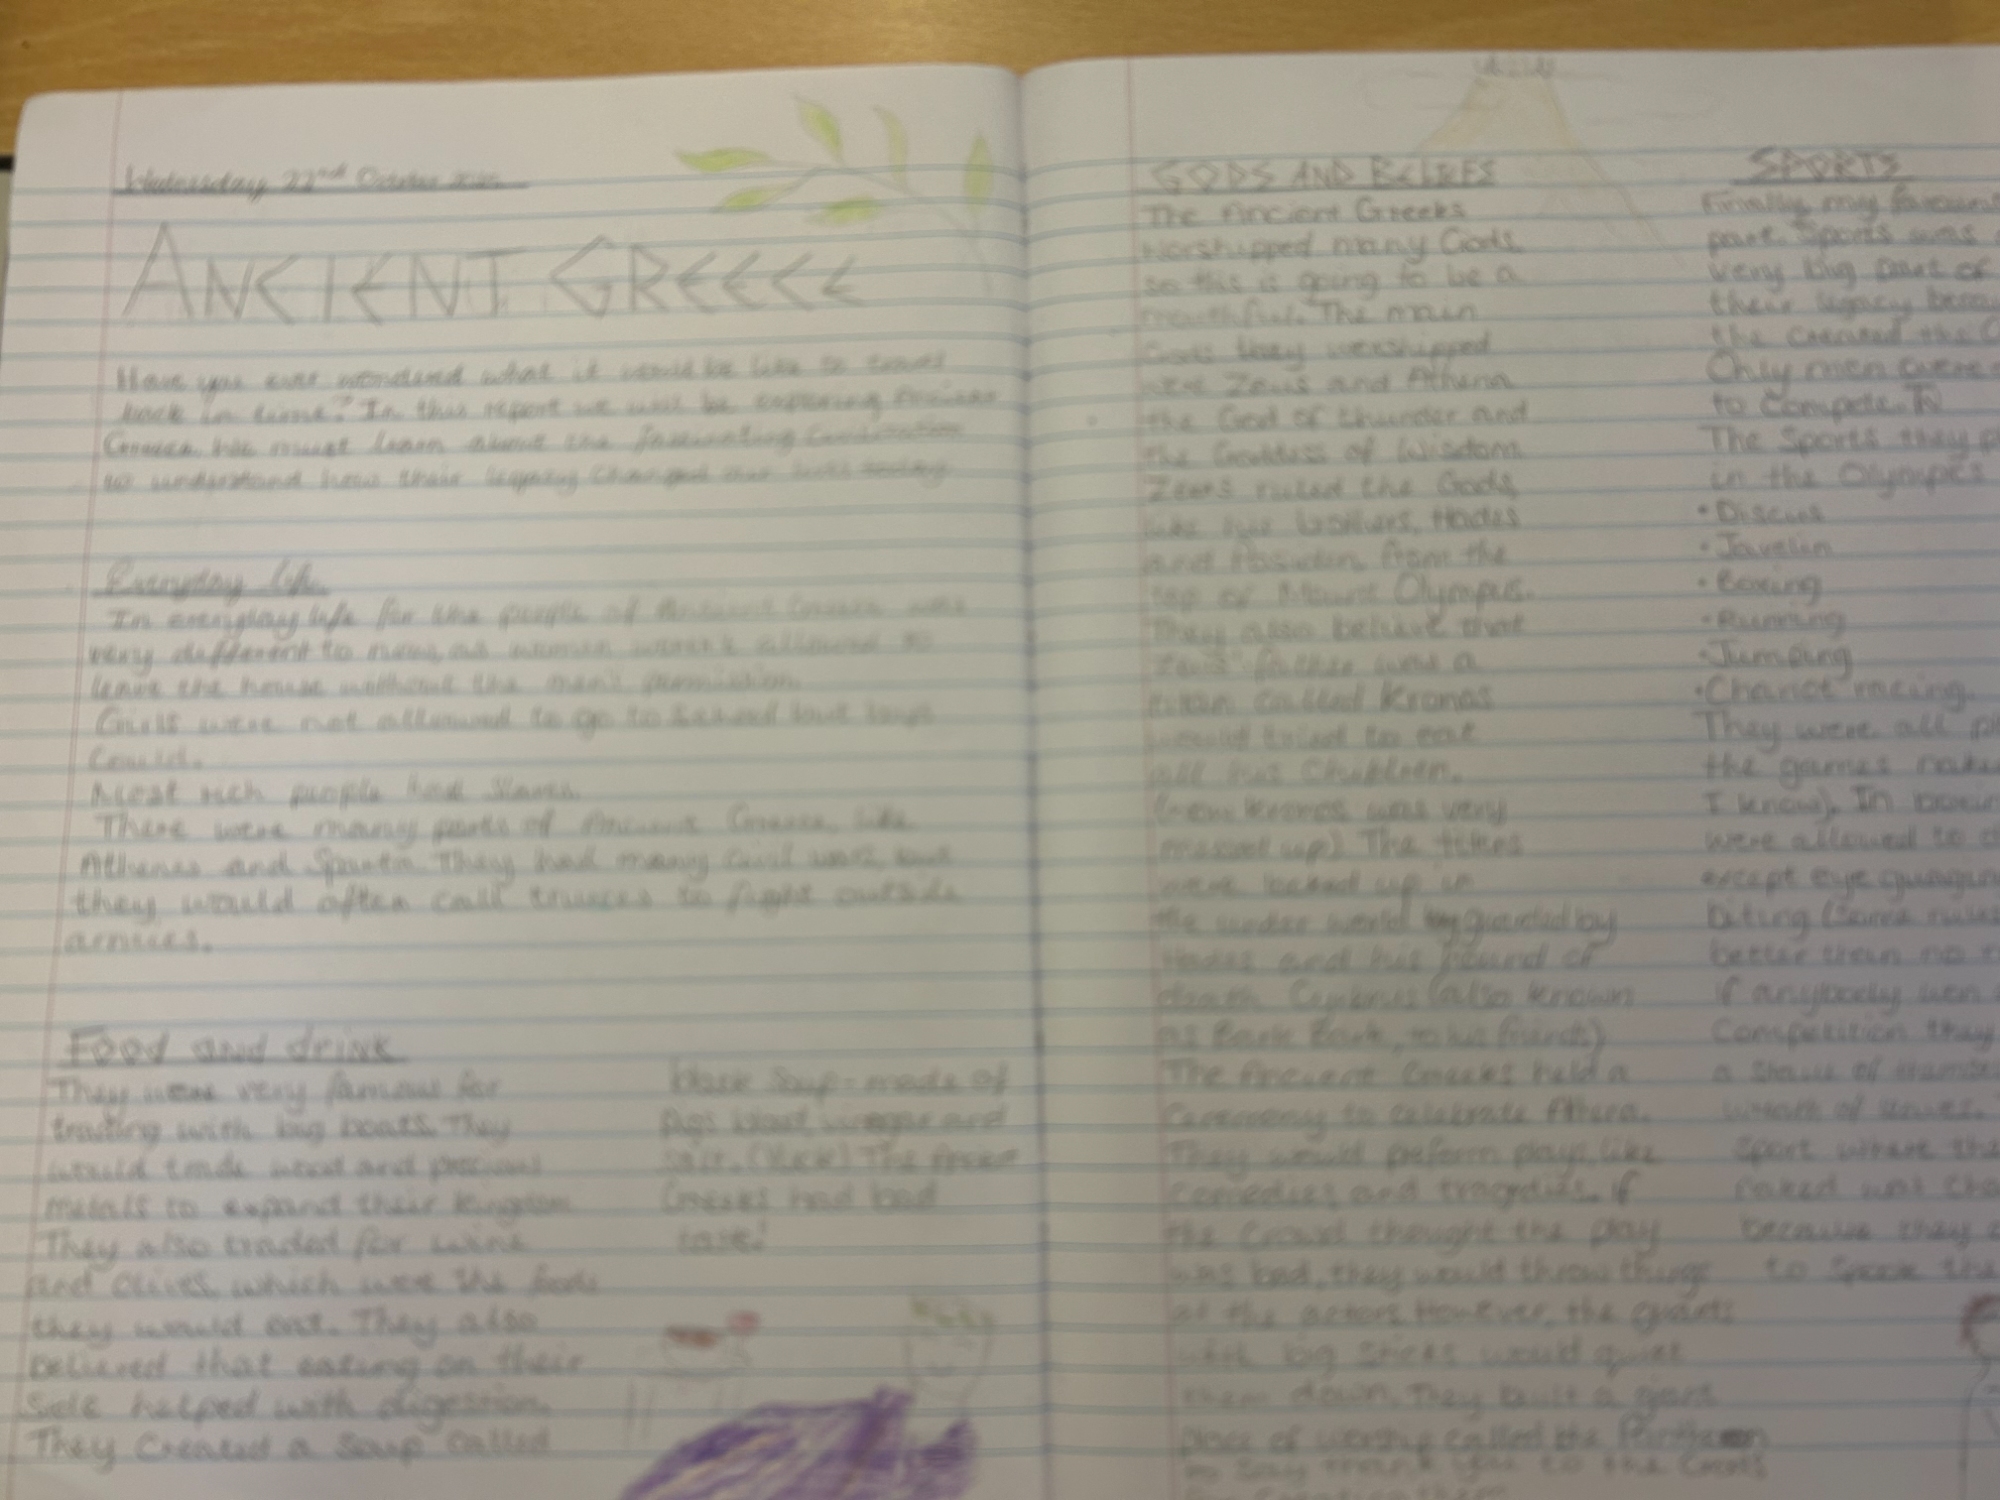 Wednesday 22nd October
ANCIENT GREECE
Have you ever wondered what it would be like to travel
back in time? In this report we will be exploring Ancient
Greece. We must learn about the fascinating civilisation
to understand how their legacy changed our lives today.
Everyday life
In everyday life for the people of Ancient Greece was
very different to now, as women wasn't allowed to
leave the house without the men's permission.
Girls were not allowed to go to school but boys
could.
Most rich people had slaves.
There were many parts of Ancient Greece, like
Athenes and Sparta. They had many civil wars, but
they would often call truces to fight outside
armies.
Food and drink
They were very famous for
trading with big boats. They
would trade wood and precious
metals to expand their kingdom.
They also traded for wine
and olives, which were the foods
they would eat. They also
believed that eating on their
side helped with digestion.
They created a soup called
black soup - made of
pigs blood, vinegar and
salt. (Yuck) The Ancient
Greeks had bad
taste!
GODS AND BELIEFS
The Ancient Greeks
worshipped many Gods
so this is going to be a
mouthful. The main
Gods they worshipped
were Zeus and Athena
the God of thunder and
the Goddess of Wisdom.
Zeus ruled the Gods
like his brothers, Hades
and from the
top of Mount Olympus.
They also believe that
Zeus' father was a
titan called Kronos
would tried to eat
all his
Kronos was very
up) The
were locked up in
the under world guarded by
Hades and his hound of
death (also known
as Bark Bark, to his friends)
The Ancient Greeks held a
ceremony to celebrate
They would preform plays, like
comedies and tragedies. If
the crowd thought the play
was bad, they would throw things
at the actors. However, the guards
with big sticks would quiet
them down. They built a giant
place of worship called the
to say thank you to the Gods
SPORTS
Finally my
part. Sports was
very big part of
their legacy
the created the
Only men were
to compete.
The Sports they
in the Olympics
• Discus
• Javelin
• Boxing
• Running
• Jumping
• Chariot racing.
They were all
the games
I know). In
were allowed to
except eye
biting (some
better than no
if anybody won
Competition they
a statue of
Sport where
was
because they
to